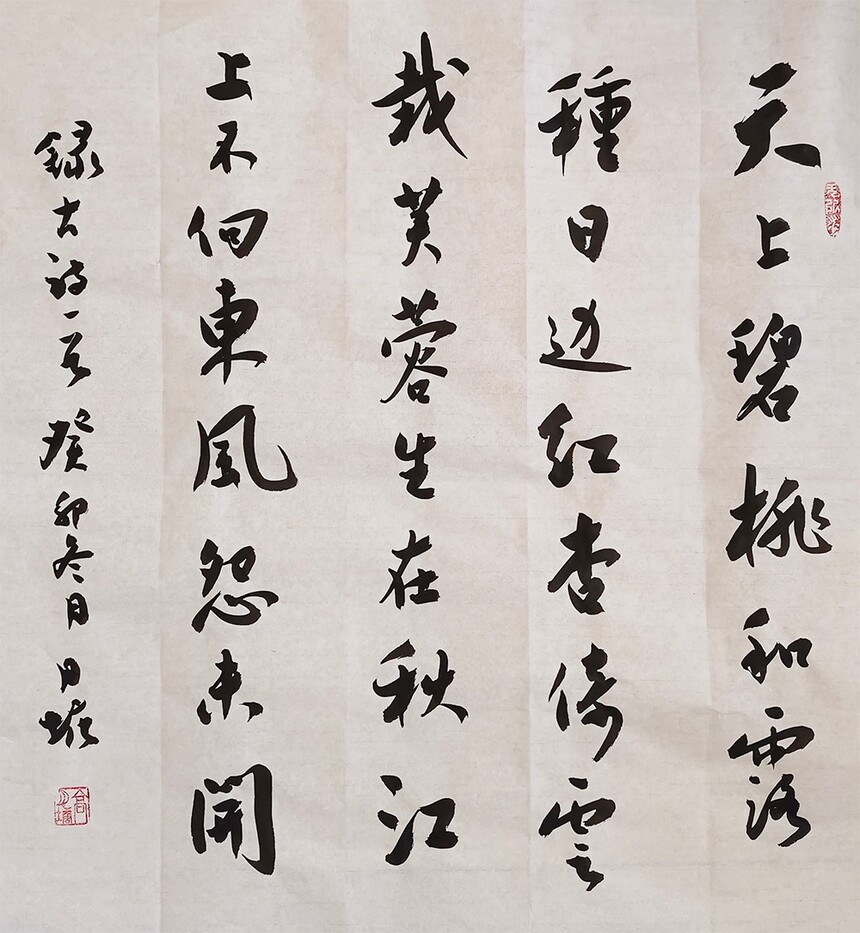 天上碧桃和露
種日边紅杏倚雲
栽芙蓉生在秋江
上不向東風怨未開
録古詩一首 癸卯冬月 月